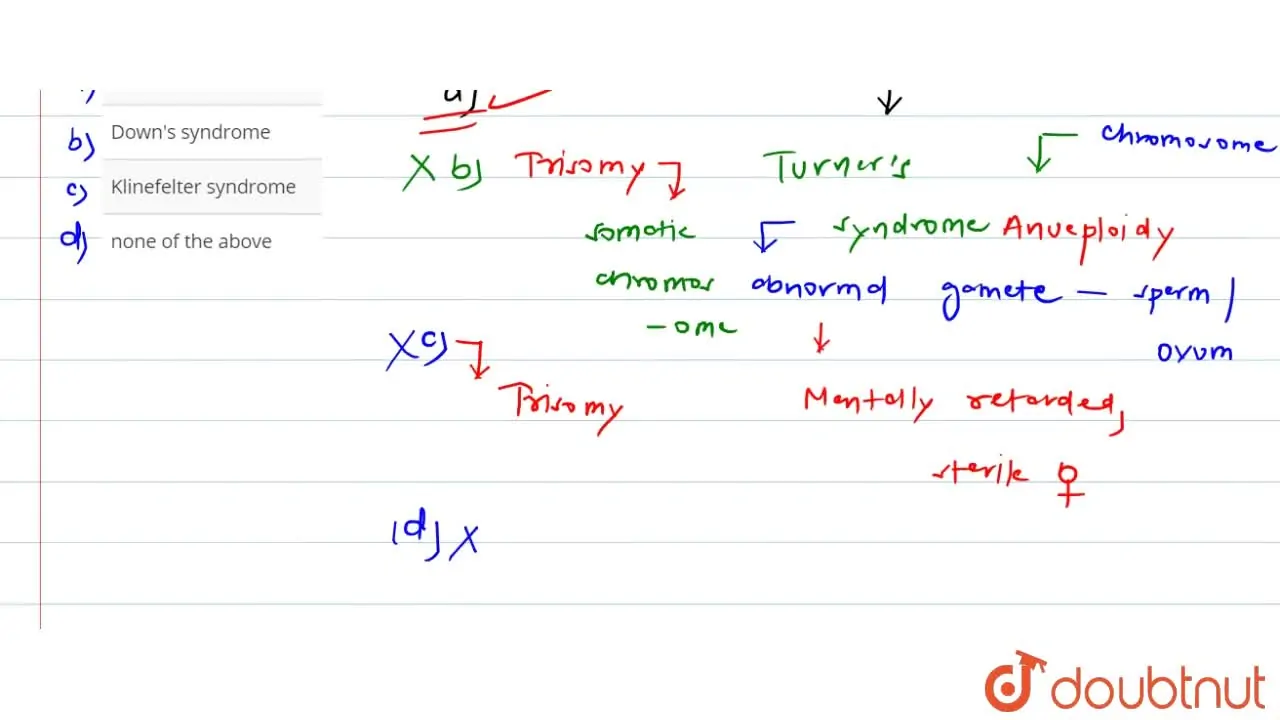 a)
b) Down's syndrome
c) Klinefelter syndrome
d) none of the above
X b) Trisomy
somatic
chromos
-ome
X c)
Trisomy
(d) X
chromosome
Turner's
syndrome Anueploidy
abnormal gamete – sperm /
ovum
Mentally retarded,
sterile ♀
doubtnut